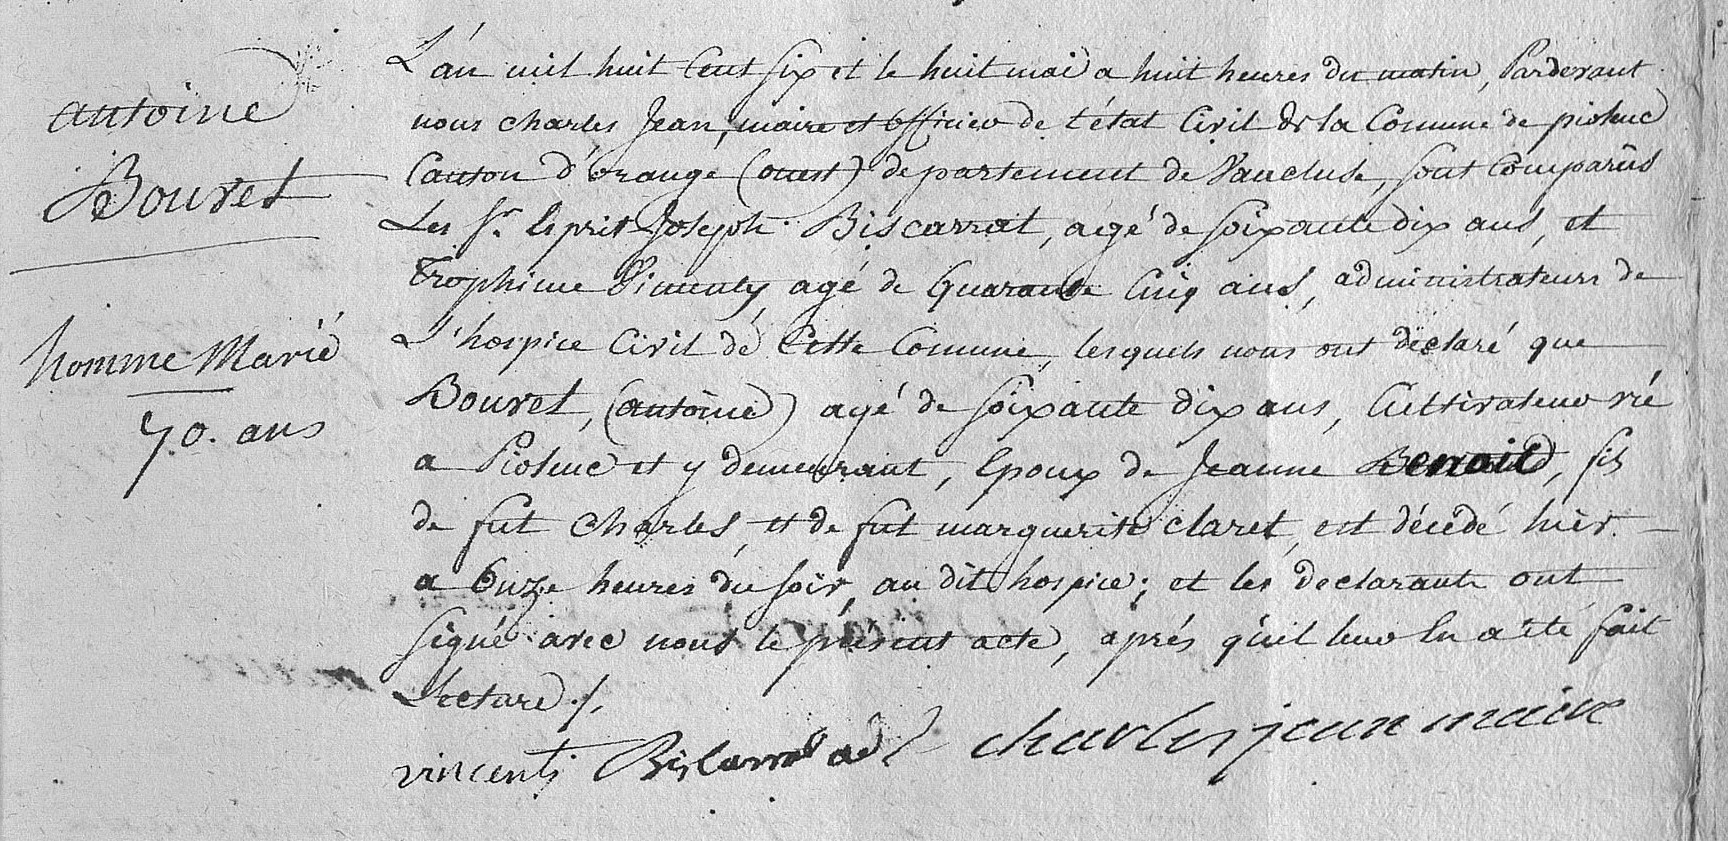 antoine
Bouvet
homme Marié
70. ans
L'an mil huit Cent six et le huit mai a huit heures du matin, Pardevant
nous charles Jean, maire et officier de l'état Civil de la Comune de piolenc
Canton d'orange (ouest) departement de Vaucluse, sont Comparûs
Les Sr. Esprit Joseph Biscarrat, agé de soixante dix ans, et
Trophime Vincenty agé de Quarante Cinq ans, administrateurs de
L'hospice Civil de Cette Comune, lesquels nous ont déclaré que
Bouvet, (antoine) agé de soixante dix ans, Cultivateur né
a Piolenc et y demeurant, Epoux de Jeanne Benoid, fils
de fut Charles, et de fut marguerite claret, est décédé hier
a Onze heures du soir, au dit hospice; et les declarants ont
signé avec nous le présent acte, aprés qu'il leur En a été fait
Lecture ./.
vincenti Biscarrat ad charles jean maire